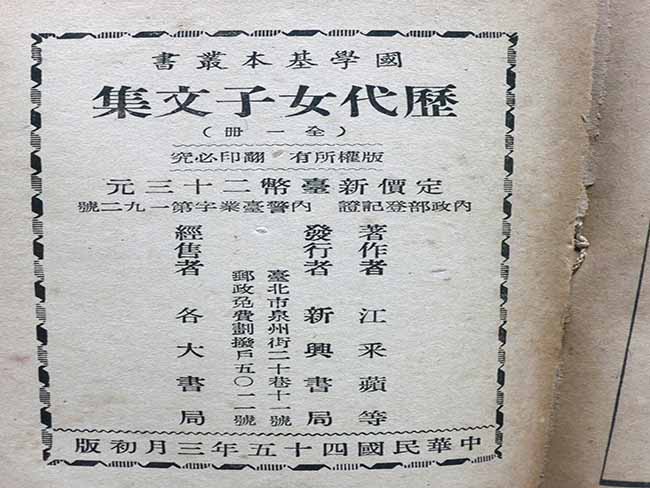 國學基本叢書
歷代女子文集
（全一冊）
版權所有 翻印必究
定價新臺幣二十三元
內政部登記證 內警臺業字第一九二號
著作者 江采蘋等
發行者 新興書局
臺北市泉州街二十巷十一號
郵政免費劃撥戶五〇二一號
經售者 各大書局
中華民國四十五年三月初版